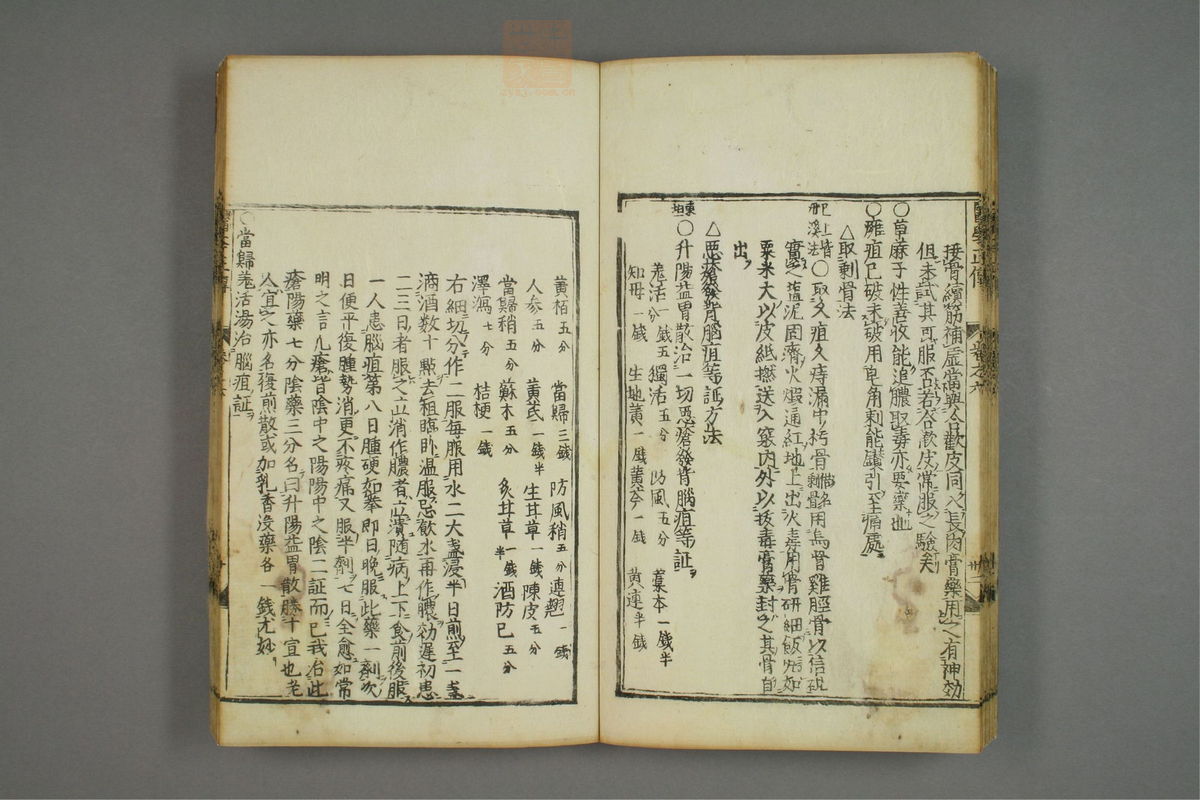 接骨續筋補虛當與合歡皮同入長肉膏藥用之有神効
但未試其可服否若合歡皮常服之驗矣
○草麻子性善收能追膿取毒亦要藥也
○癰疽已破未破用皂角刺能鑽引至痛處
△取剩骨法
已上皆丹溪法○取久疽久痔漏中朽骨名剩骨用烏骨雞脛骨以信砒
實之鹽泥固濟火煅通紅地上出火毒用骨研細飯丸如
粟米大以皮紙撚送入竅內外以拔毒膏藥封之其骨自
出
△惡瘡發背腦疽等証方法
東垣○升陽益胃散治一切惡瘡發背腦疽等証
羗活一錢五 獨活五分 防風五分 藁本一錢半
知母一錢 生地黃一錢 黃芩一錢 黃連半錢
黃栢五分 當歸三錢 防風稍五分 連翹一錢
人参五分 黃芪一錢半 生甘草一錢 陳皮五分
當歸稍五分 蘇木五分 炙甘草一錢半 酒防已五分
澤瀉七分 桔梗一錢
右細切分作二服每服用水二大盞浸半日煎至一盞
滴酒数十點去粗臨卧温服忌飲水再作膿効遲初患
二三日者服之立消作膿者立潰随病上下食前後服
一人患腦疽第八日腫硬如拳即日晚服此藥一劑次
日便平復腫勢消更不疼痛又服半劑七日全愈如常
明之言凡瘡皆陰中之陽陽中之陰二証而已我治此
瘡陽藥七分陰藥三分名曰升陽益胃散勝十宣也老
人宜之亦名復煎散或加乳香沒藥各一錢尤妙
○當歸羗活湯治腦疽証
醫學正傳
卷之六